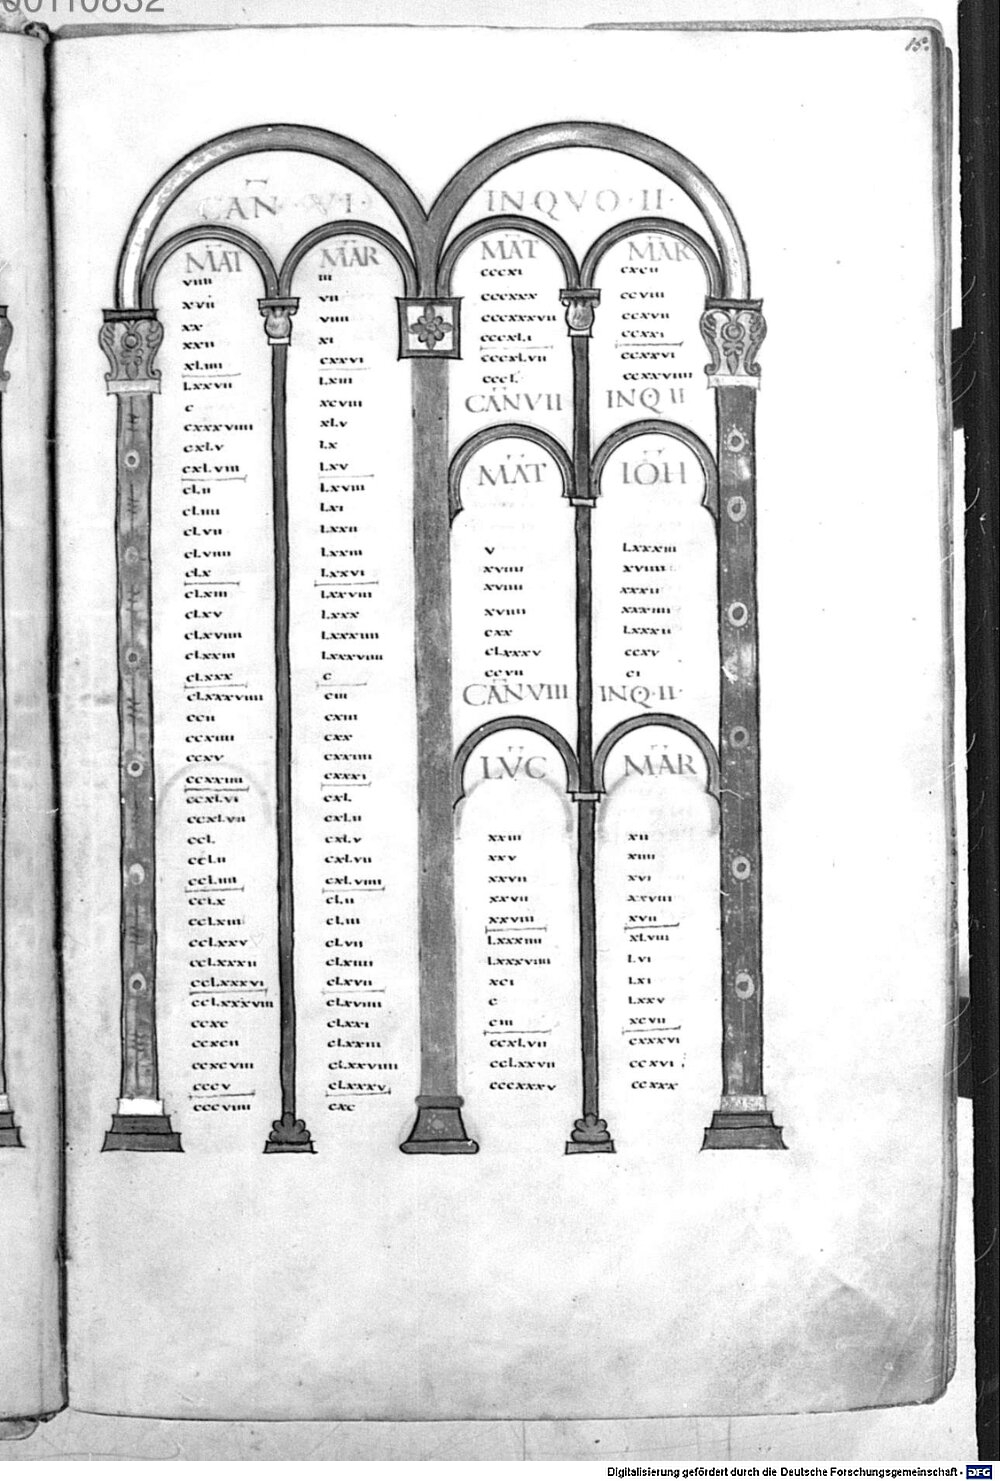 15.
CAÑ · VI ·
MAT MAR
viiii iii
xvii vii
xx viiii
xxii xi
xliiii cxxvi
lxxvii lxiii
c xcviii
cxxxviiii xlv
cxlv lx
cxlviii lxv
clii lxviii
cliiii lxi
clvii lxxii
clviiii lxxiii
clx lxxvi
clxiii lxxviii
clxv lxxx
clxviiii lxxxiiii
clxxiii lxxxviiii
clxxx c
clxxxviiii ciii
ccii cxiii
ccxiiii cxx
ccxv cxxiiii
ccxxiiii cxxxi
ccxlvi cxl
ccxlvii cxlii
ccl cxlv
cclii cxlvii
ccliiii cxlviiii
cclx clii
cclxiii cliii
cclxxv clvii
cclxxxii clxiiii
cclxxxvi clxvii
cclxxxviii clxviiii
ccxc clxxi
ccxcii clxxiii
ccxcviii clxxviiii
cccv clxxxv
cccviiii cxc
INQVO · II ·
MAT MAR
cccxi cxcii
cccxxx ccviii
cccxxxvii ccxvii
cccxli ccxxi
cccxlvii ccxxvi
cccl ccxxviiii
CAÑ VII INQ II
MAT IOH
v lxxxiii
xviiii xviiii
xviiii xxxii
xviiii xxxiiii
cxx lxxxii
clxxxv ccxv
ccvii ci
CAÑ VIII INQ · II ·
LVC MAR
xxiii xii
xxv xiiii
xxvii xvi
xxvii xxviii
xxviii xvii
lxxxiiii xlviii
lxxxviiii lvi
xci lxi
c lxxv
ciii xcvii
ccxlvii cxxxvi
cclxxvii ccxvi
cccxxxv ccxxx
Digitalisierung gefördert durch die Deutsche Forschungsgemeinschaft - DFG